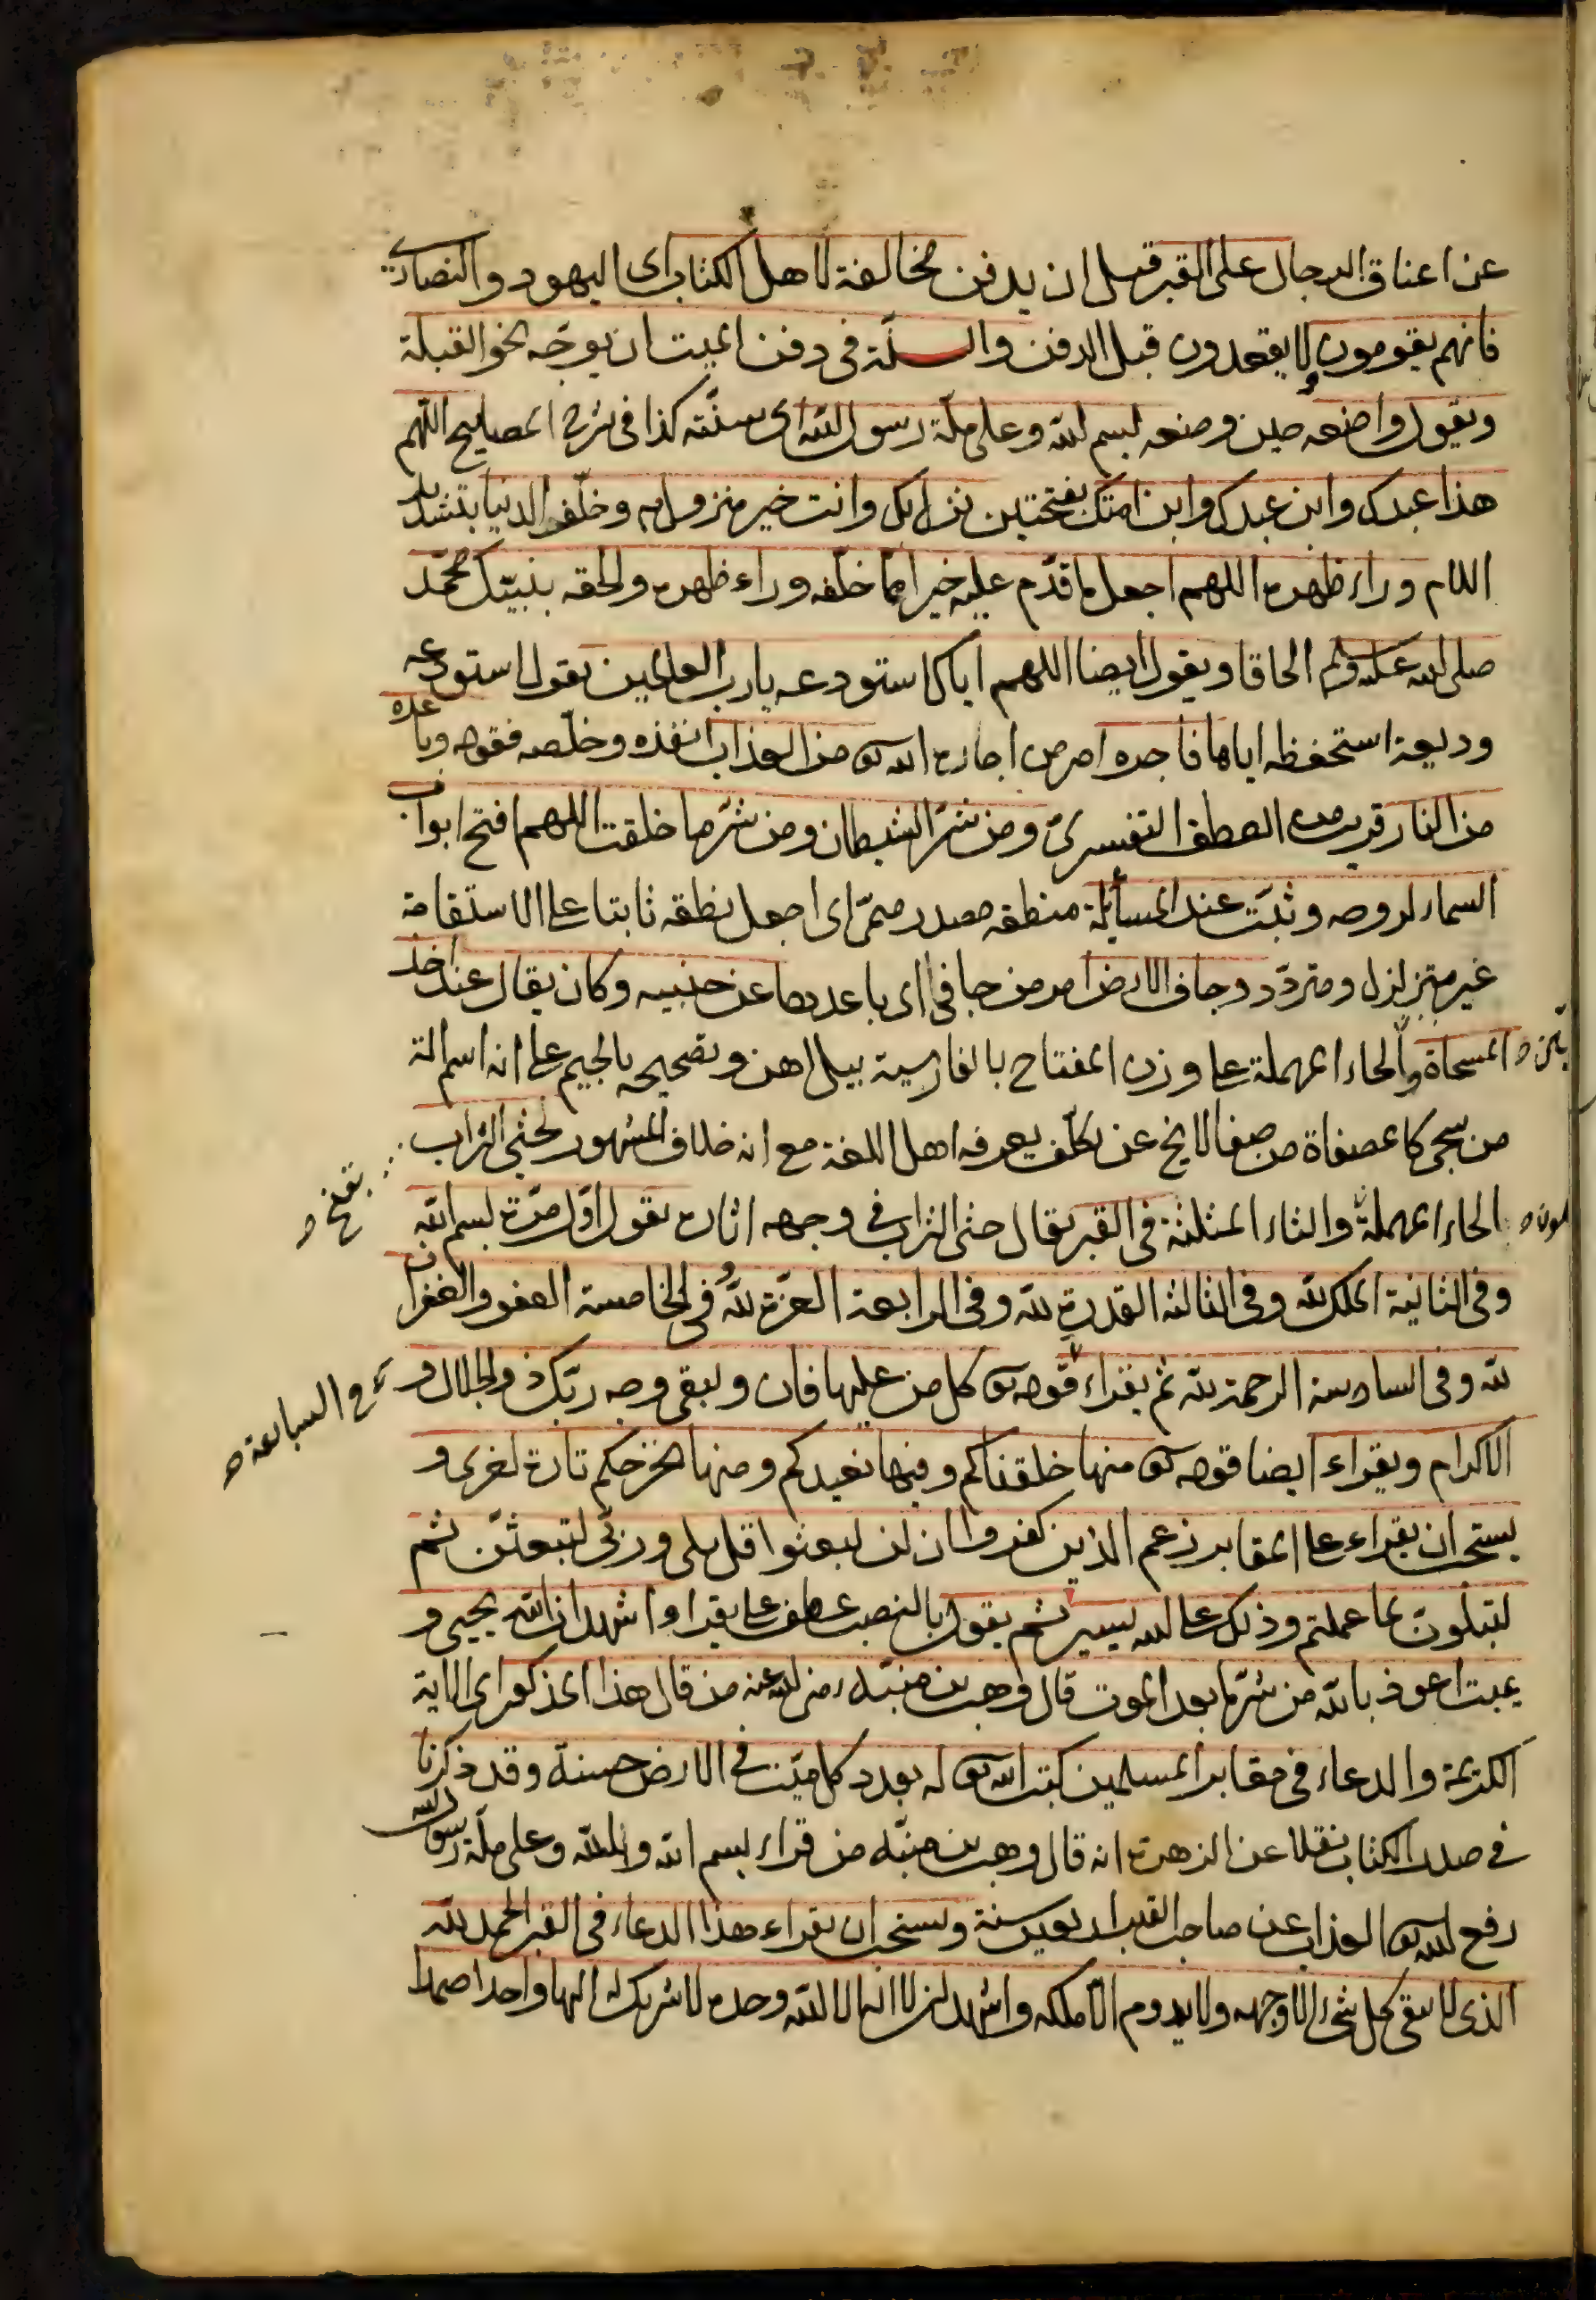 عن اعناق الرجال على القبر قبل ان يدفن مخالفة لاهل الكتاب اى اليهود والنصارى
فانهم يقومون ولا يقعدون قبل الدفن والسنّة فى دفن الميت ان يوجّه نحو القبلة
ويقول واضعه حين وضعه بسم الله وعلى ملّة رسول الله اى سنّته كذا فى شرح المصابيح اللهم
هذا عبدك وابن عبدك وابن امتك بفتحتين نزل بك وانت خير منزول به وخلّف الدنيا بتشديد
اللام وراء ظهره اللهم اجعل ما قدّم عليه خيرا ممّا خلّفه وراء ظهره والحقه بنبيّك محمّد
صلى الله عليه وسلم الحاقا ويقول ايضا اللهم اياك استودعه يا رب العلمين يقول استودعه
وديعة استحفظه اياها فاجره امر من اجاره الله تع من العذاب انقذه وخلّصه فقوله وباعده
من النار قريب من العطف التفسيرى ومن شرّ الشيطان ومن شرّ ما خلقت اللهم افتح ابواب
السماء لروحه وثبّت عند المسألة منطقه مصدر ميمىّ اى اجعل نطقه ثابتا على الاستقامة
غير متزلزل ومتردّد وجاف الارض امر من جافى اى باعدها عن جنبيه وكان يقال عند اخذ
المسحاة والحاء المهملة على وزن المفتاح بالفارسية بيل اهن وتصحيحه بالجيم على انه اسم الة
من سجى كا مصفاة من صفا لا يخ عن تكلّف يعرفه اهل اللغة مع انه خلاف المشهور لحثى التراب
بفتح ه
الحاء المهملة والثاء المثلثة فى القبر يقال حثى التراب فى وجهه اثاره يقول اوّل مرّة بسم الله
وفى الثانية الملك لله وفى الثالثة القدرة لله وفى الرابعة العزّة لله وفى الخامسة العفو والغفران
لله وفى السادسة الرحمة لله ثم يقراء قوله تع كل من عليها فان ويبقى وجه ربّك ذو الجلال و
فى السابعة ه
الاكرام ويقراء ايضا قوله تع منها خلقناكم وفيها نعيدكم ومنها نخرجكم تارة اخرى و
يستحب ان يقراء على المقابر زعم الذين كفروا ان لن يبعثوا قل بلى وربّى لتبعثنّ ثم
لتبنئونّ بما عملتم وذلك على الله يسير ثم يقول بالنصب عطف على يقراء اشهد ان الله يحيى و
يميت اعوذ بالله من شرّ ما بعد الموت قال وهب بن منبّه رضى الله عنه من قال هذا المذكور اى الاية
الكريمة والدعاء فى مقابر المسلمين كتب الله تع له بعدد كل ميّت فى الارض حسنة وقد ذكرنا
فى صدر الكتاب نقلا عن الزهرة انه قال وهب بن منبّه من قراء بسم الله وبالله وعلى ملّة رسول الله
رفع الله تع العذاب عن صاحب القبر اربعين سنة ويستحب ان يقراء هذا الدعاء فى القبر الحمد لله
الذى لا يبقى كل شىء الا وجهه ولا يدوم الا ملكه واشهد ان لا اله الا الله وحده لا شريك له الها واحدا صمدا